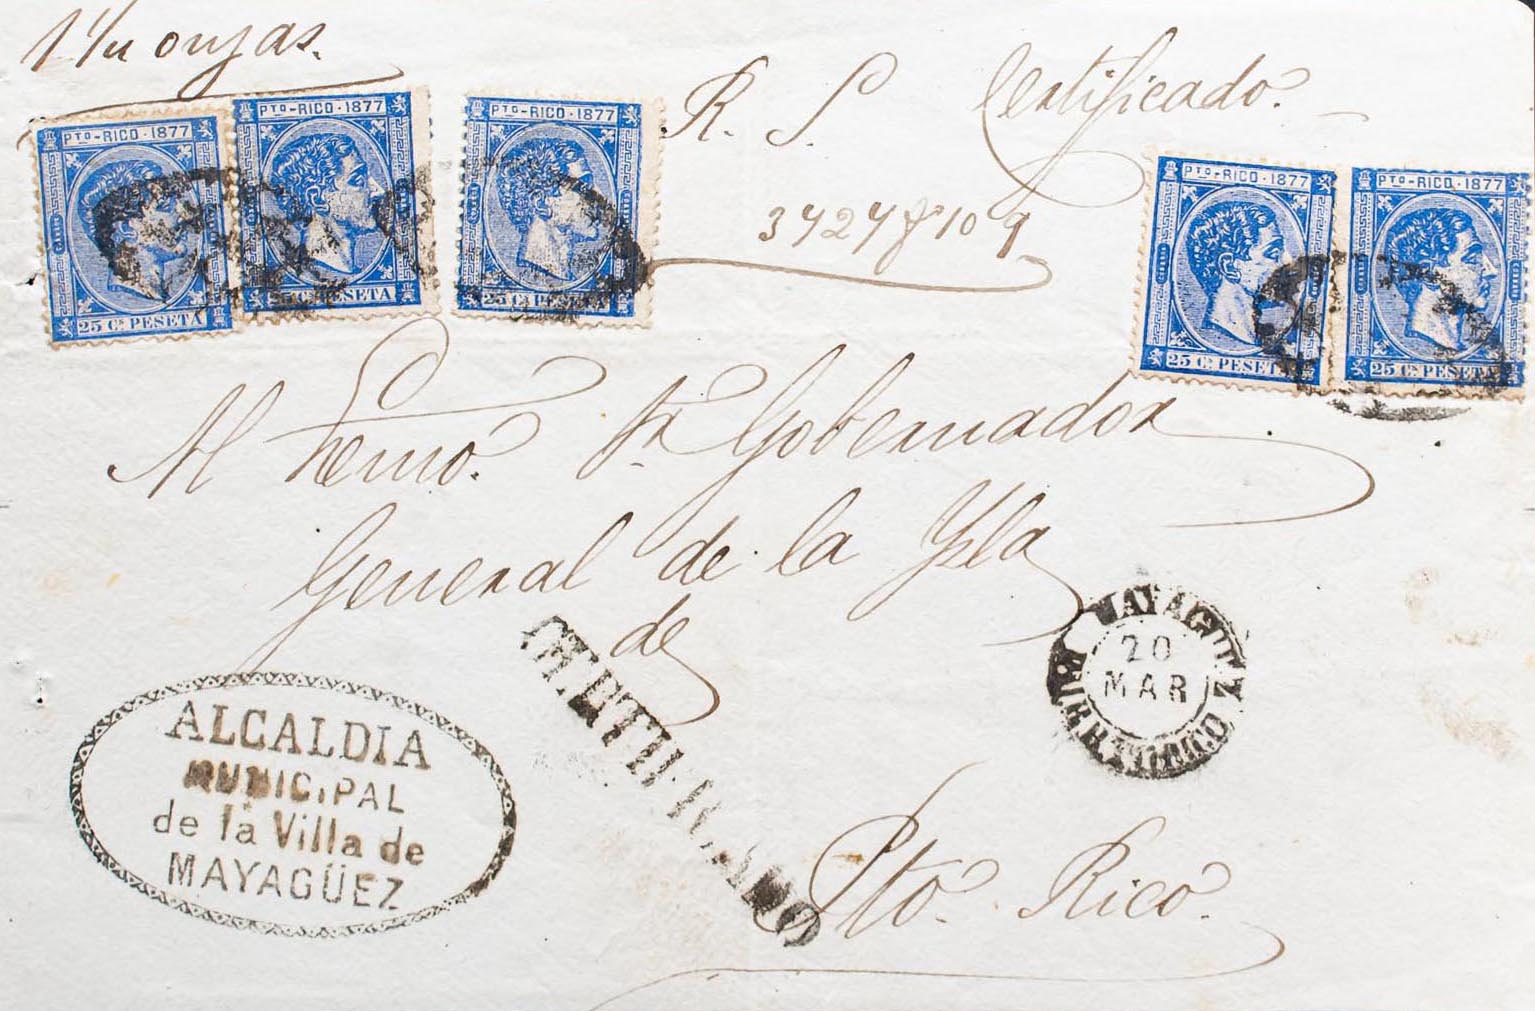 R. S. Certificado.
PTO-RICO · 1877
25 Cs PESETA
PTO-RICO · 1877
25 Cs PESETA
PTO-RICO · 1877
25 Cs PESETA
PTO-RICO · 1877
25 Cs PESETA
PTO-RICO · 1877
25 Cs PESETA
Al Exmo. Sr Gobernador
General de la Ysla
de
Pto. Rico.
CERTIFICADO
MAYAGUEZ
20
MAR
PUERTO RICO
ALCALDIA
MUNICIPAL
de la Villa de
MAYAGÜEZ